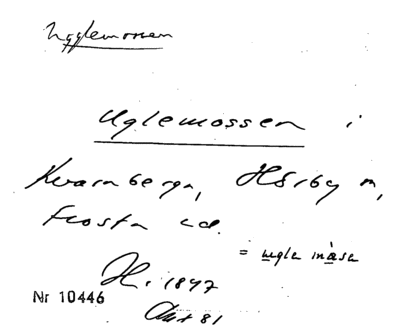 Ugglemossen
Uglemossen i
Kvarnberga, Hörby sn,
Frosta hd.
= ugla màsa
1847
Nr 10446
81